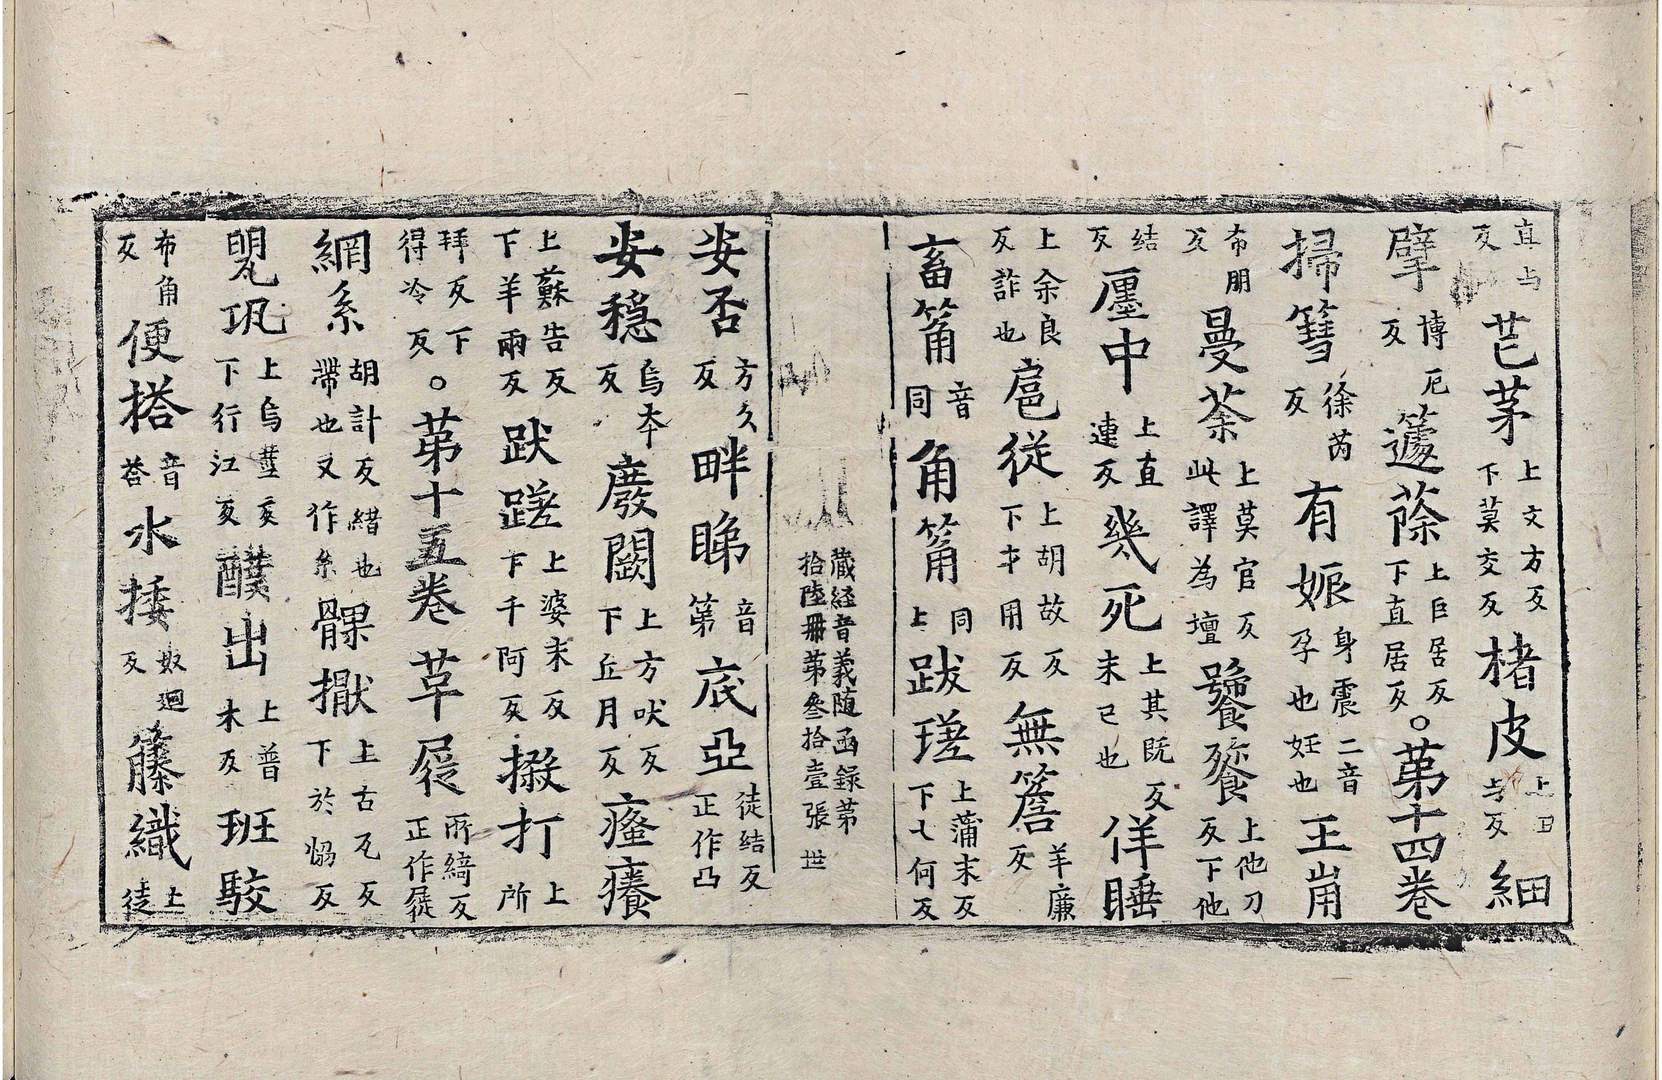 直与反芒茅上文方反下莫交反楮皮上丑与反細
擘博厄反籧蒢上巨居反下直居反。第十四卷
掃篲徐芮反有娠身震二音孕也妊也王崩
布朋反曼荼上莫官反此譯為壇饕餮上他刀反下他
結反廛中上直連反幾死上其既反末已也佯睡
上余良反詐也扈從上胡故反下才用反無簷羊廉反
畜䈰音同角䈰同上跋瑳上蒲末反下七何反
藏経音義随函録第
拾陸冊第叄拾壹張 世
安否方久反畔睇音第底亞徒結反正作凸
安穩烏本反廢闕上方吠反下丘月反瘙癢
上蘇告反下羊兩反跋蹉上婆末反下千阿反掇打上所
拜反下得冷反。第十五卷草屣所綺反正作屣
網系胡計反緒也帶也又作糸髁擫上古瓦反下於協反
甖瓨上烏莖反下行江反醭出上普木反班駮
布角反便搭音荅水捼奴迴反籐織上徒